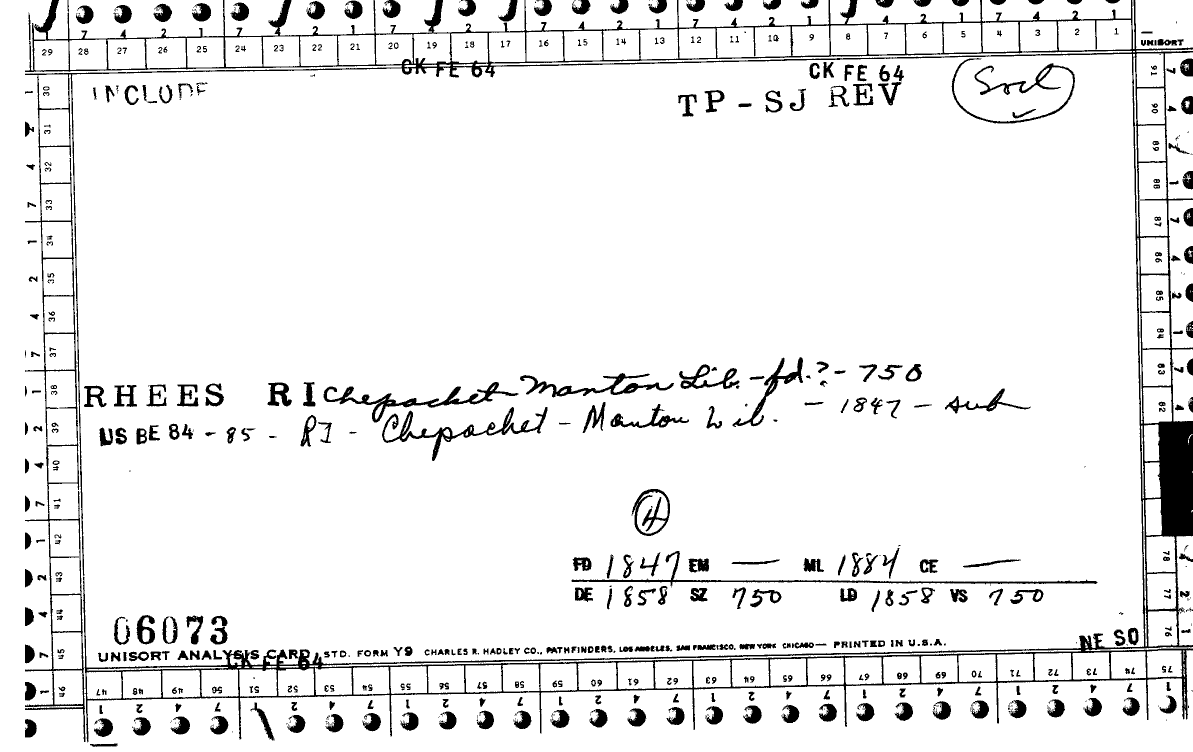 7 4 2 1 7 4 2 1 7 4 2 1 7 4 2 1 7 4 2 1 7 4 2 1 7 4 2 1
29 28 27 26 25 24 23 22 21 20 19 18 17 16 15 14 13 12 11 10 9 8 7 6 5 4 3 2 1
UNISORT
CK FE 64 CK FE 64
INCLUDE TP-SJ REV Socl
RHEES RI Chepachet Manton Lib. - fd.? - 750
US BE 84-85 - RI - Chepachet - Manton Lib. - 1847 - sub
4
FD 1847 EM — ML 1884 CE —
DE 1858 SZ 750 LD 1858 VS 750
06073
UNISORT ANALYSIS CARD, STD. FORM Y9 CHARLES R. HADLEY CO., PATHFINDERS, LOS ANGELES, SAN FRANCISCO, NEW YORK CHICAGO — PRINTED IN U.S.A.
CK FE 64
NE SO
30 31 32 33 34 35 36 37 38 39 40 41 42 43 44 45 46
91 90 89 88 87 86 85 84 83 82 78 77 76
47 48 49 50 51 52 53 54 55 56 57 58 59 60 61 62 63 64 65 66 67 68 69 70 71 72 73 74 75